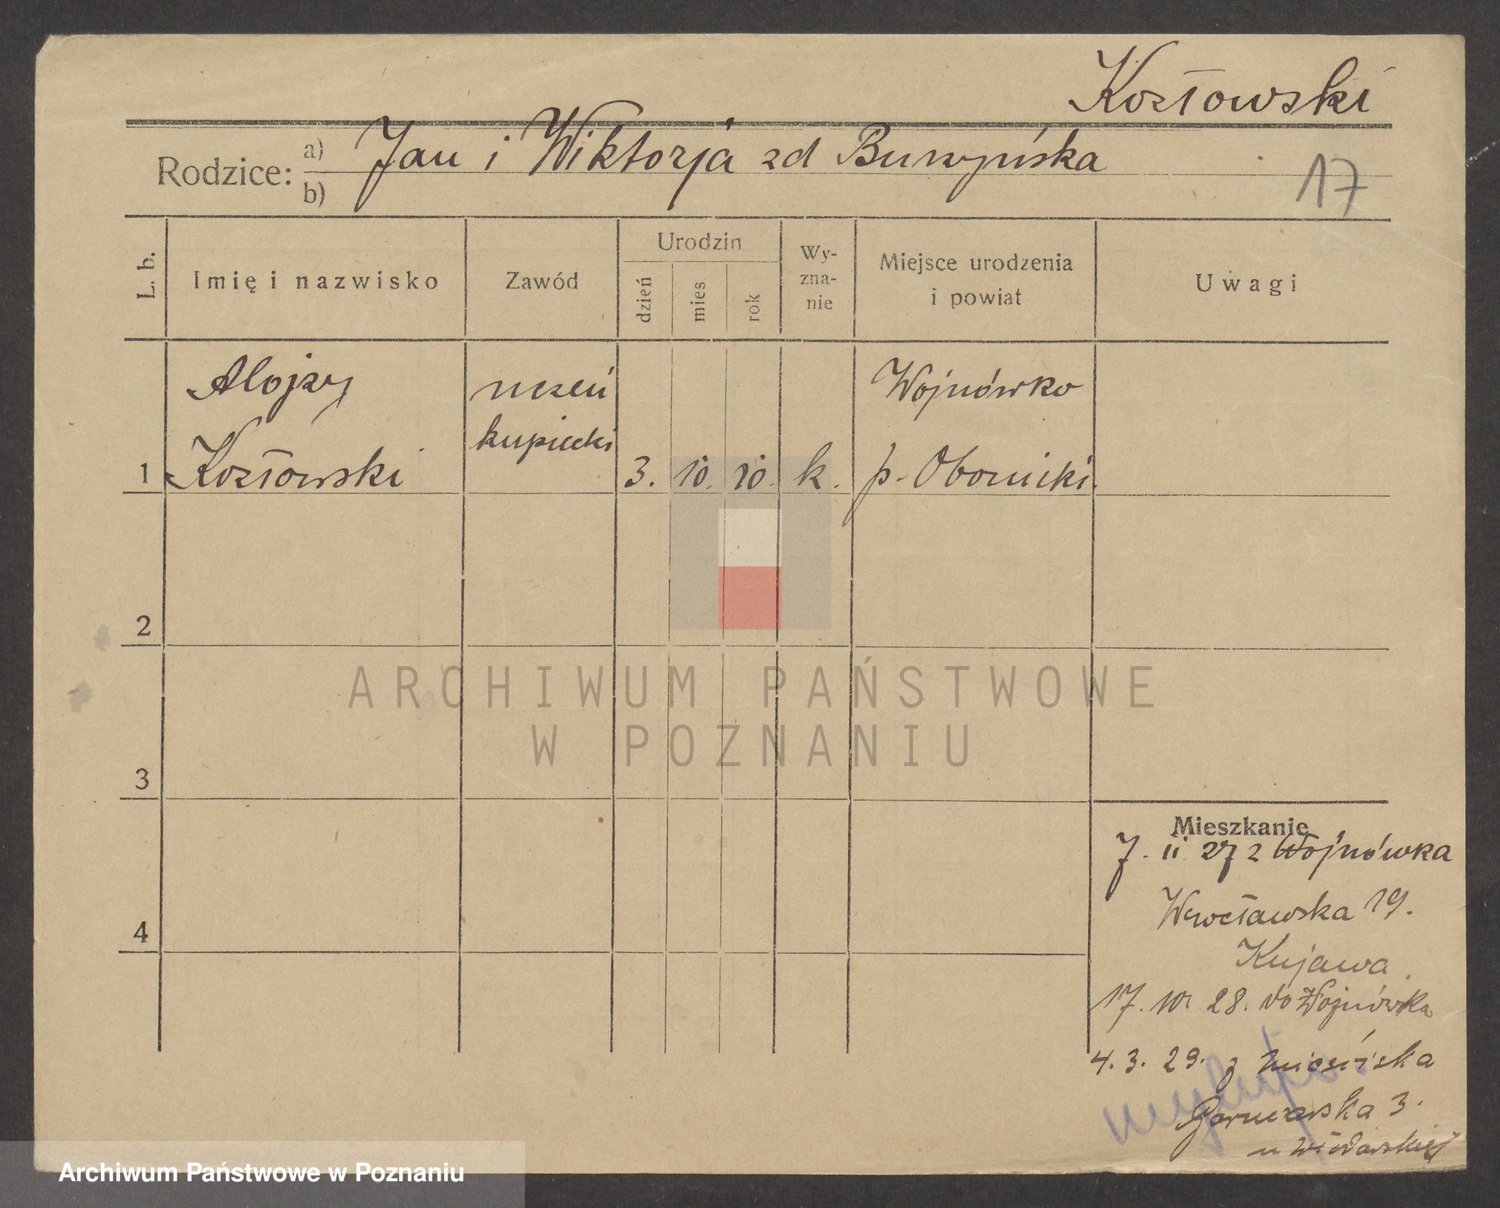 Kozłowski
Rodzice: a) Jan i Wiktorja zd Buszyńska
b)
17
L. b.
Imię i nazwisko
Zawód
Urodzin
dzień
mies
rok
Wy-
zna-
nie
Miejsce urodzenia
i powiat
Uwagi
Alojzy
uczeń
Wojnówko
kupiecki
1 Kozłowski 3. 10. 10. k. p. Obornicki.
2
ARCHIWUM PAŃSTWOWE
W POZNANIU
3
Mieszkanie
7. 11 27 z Wojnówka
Wrocławska 19.
4
Kujawa.
17. 10. 28. do Wojnówka
4. 3. 29. z
Garncarska 3.
u
Archiwum Państwowe w Poznaniu